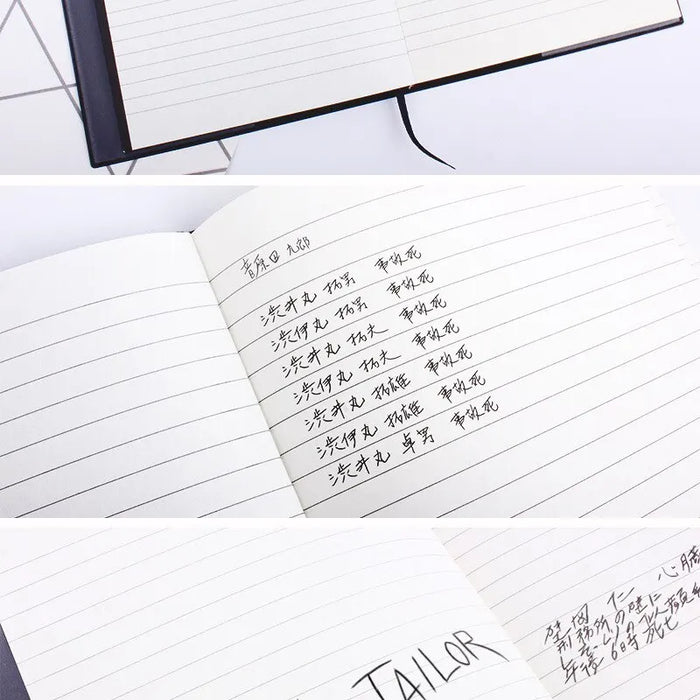 音原田 九郎
渋井丸 拓男 事故死
渋伊丸 拓男 事故死
渋井丸 拓夫 事故死
渋伊丸 拓夫 事故死
渋井丸 拓雄 事故死
渋伊丸 拓雄 事故死
渋井丸 卓男 事故死
TAILOR
仁 心臓
刑務所の壁に
午後6時 死亡